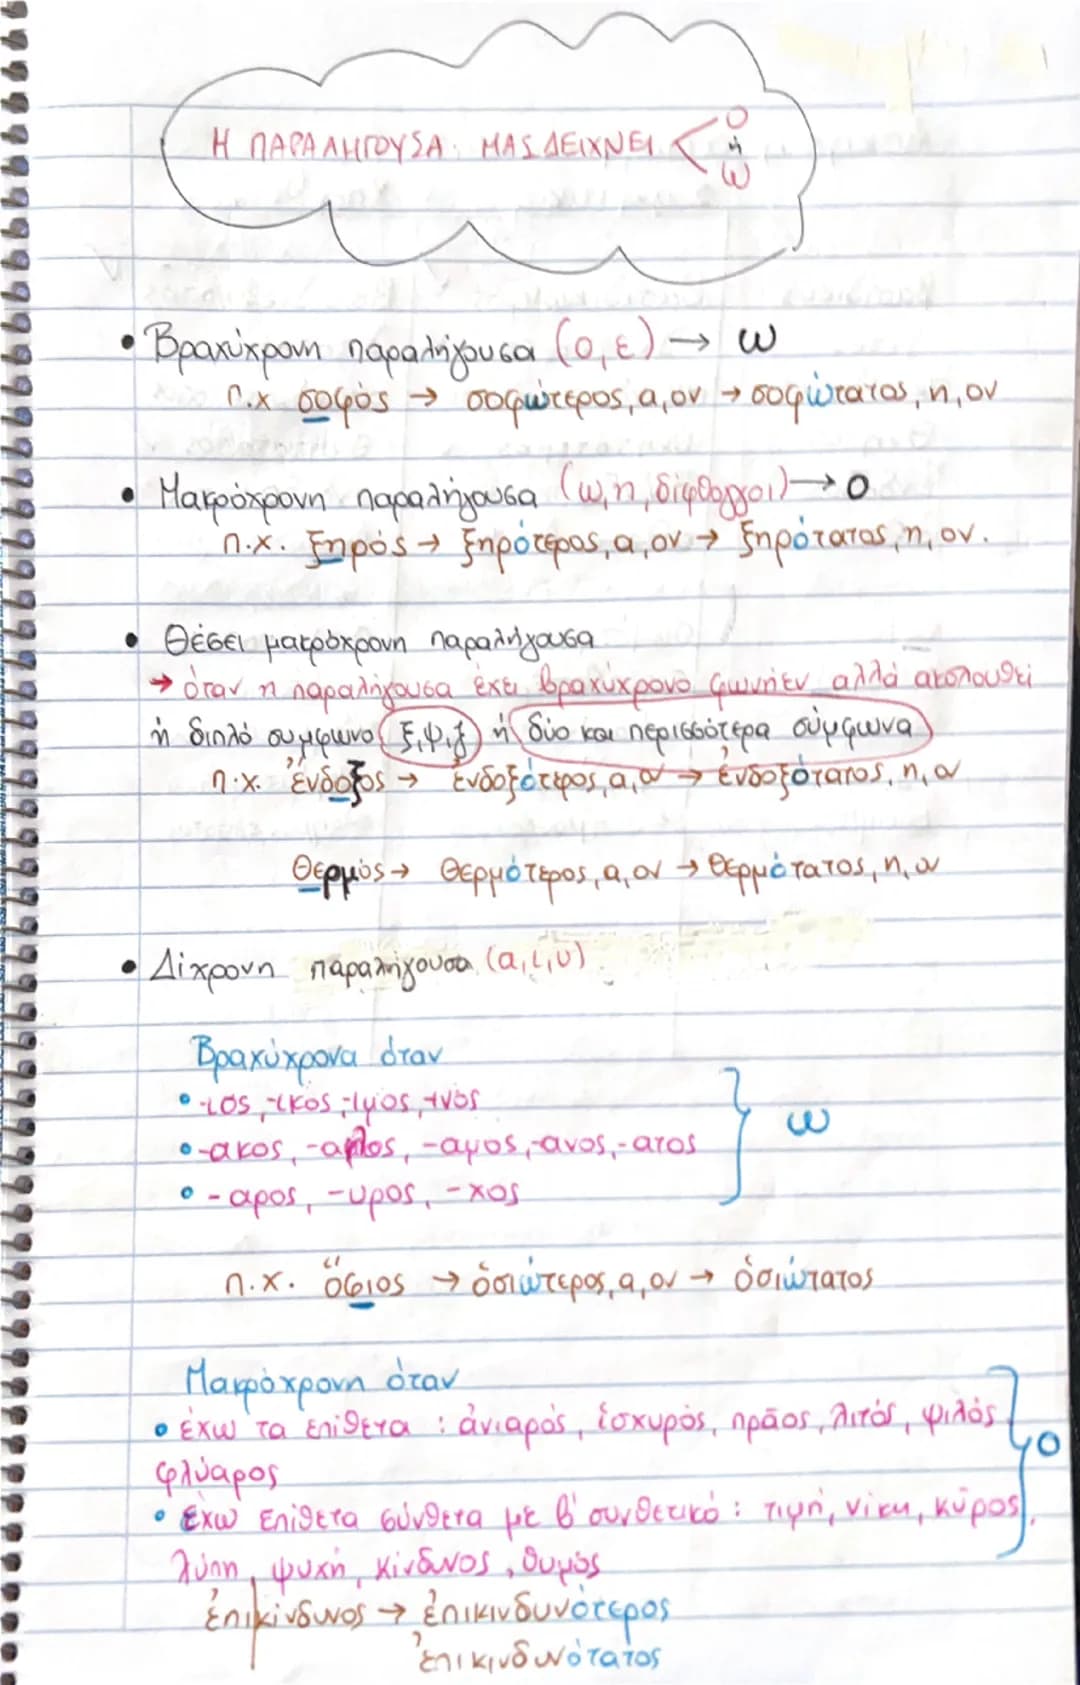 Η ΠΑΡΑΛΗΓΟΥSΑ ΜΑS ΔΕΙΧΝΕΙ < Ο ή ω
• Βραχύχρονη παραλήγουσα (ο, ε) → ω
π.χ σοφός → σοφώτερος, α, ον → σοφώτατος, η, ον
• Μακρόχρονη παραλήγουσα (ω, η, δίφθογγοι) → ο
π.χ. ξηρός → ξηρότερος, α, ον → ξηρότατος, η, ον.
• Θέσει μακρόχρονη παραλήγουσα
→ όταν η παραλήγουσα έχει βραχύχρονο φωνήεν αλλά ακολουθεί
ή διπλό συμφωνο ξ, ψ, ζ ή δύο και περισσότερα σύμφωνα
π.χ. ἔνδοξος → ἐνδοξότερος, α, ον → ἐνδοξότατος, η, ον
Θερμός → Θερμότερος, α, ον → Θερμότατος, η, ον
• Δίχρονη παραλήγουσα (α, ι, υ)
Βραχύχρονα όταν
• -ιος, -ικος, -ιμος, -ινος
• -ακος, -αλος, -αμος, -ανος, -ατος } ω
• -αρος, -υρος, -χος
π.χ. ὅσιος → ὁσιώτερος, α, ον → ὁσιώτατος
Μακρόχρονη όταν
• έχω τα επίθετα : ἀνιαρός, ἰσχυρός, πρᾶος, λιτός, ψιλός } ο
φλύαρος
• Έχω επίθετα σύνθετα με β' συνθετικό : τιμή, νίκη, κύρος,
λύπη, ψυχή, κίνδυνος, θυμός
ἐπικίνδυνος → ἐπικινδυνότερος
ἐπικινδυνότατος